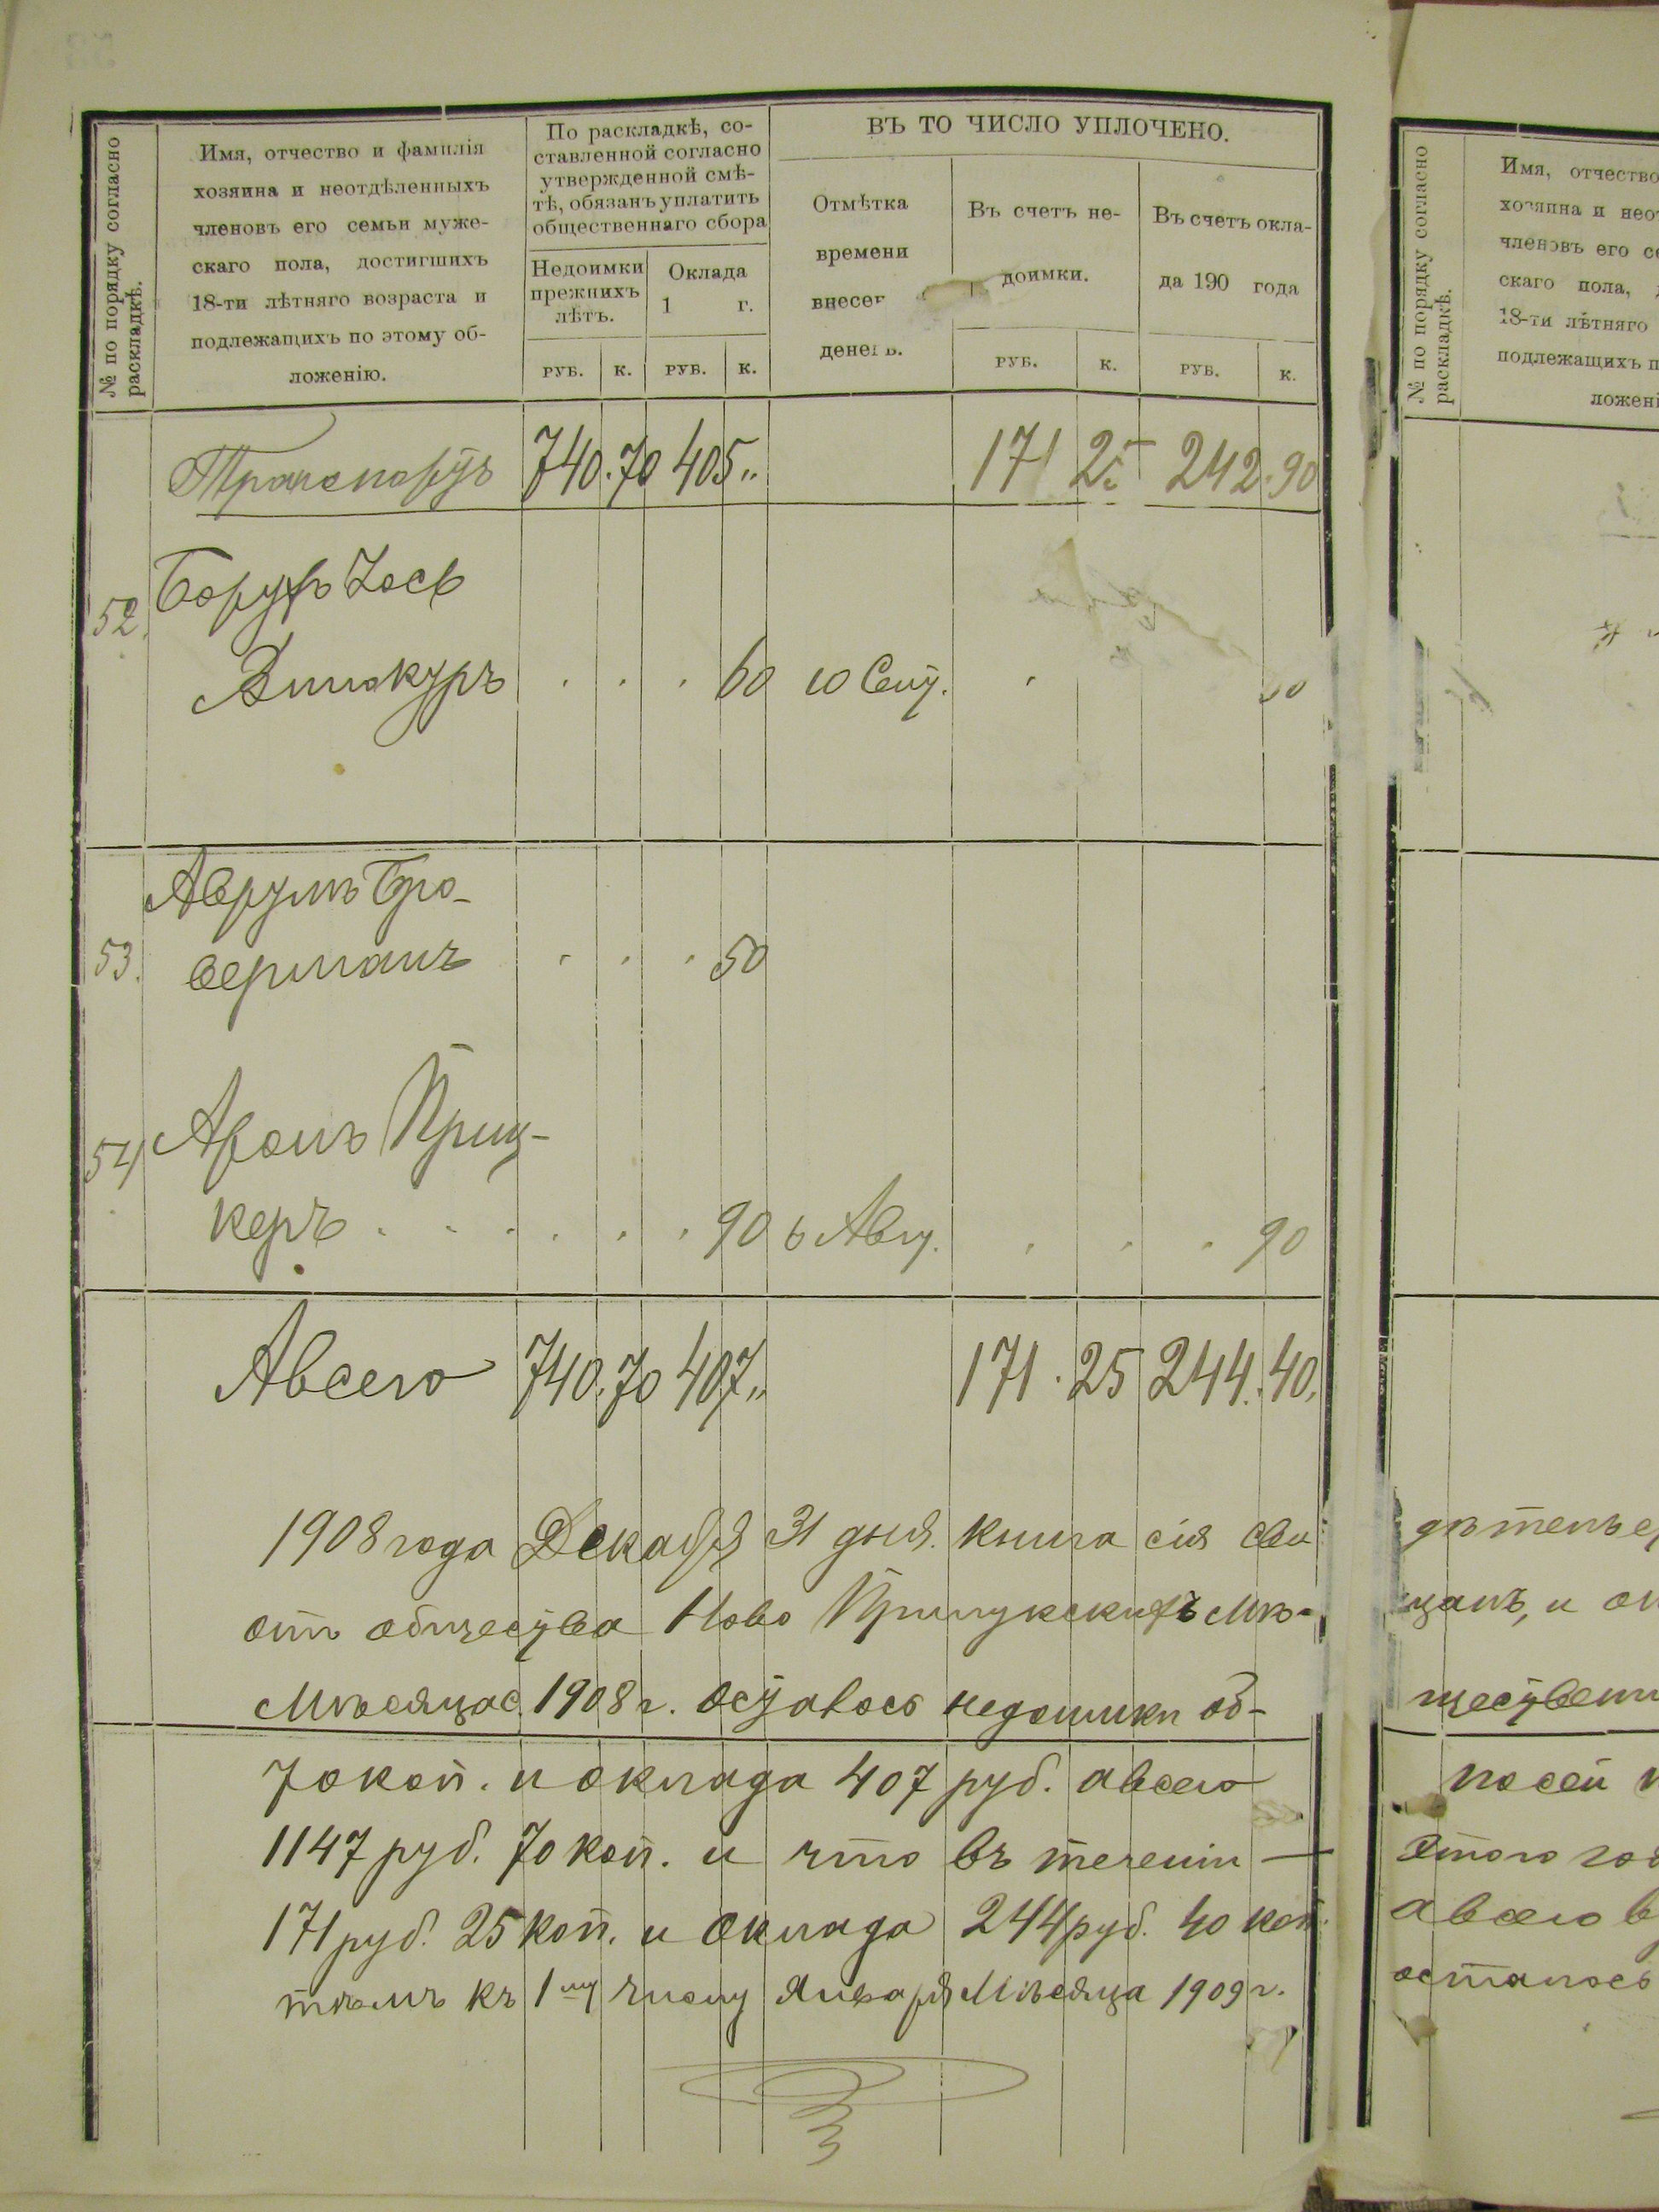 № по порядку согласно
раскладкѣ.
Имя, отчество и фамилія
хозяина и неотдѣленныхъ
членовъ его семьи муже-
скаго пола, достигшихъ
18-ти лѣтняго возраста и
подлежащихъ по этому об-
ложенію.
По раскладкѣ, со-
ставленной согласно
утвержденной смѣ-
тѣ, обязанъ уплатить
общественнаго сбора
Недоимки
прежнихъ
лѣтъ.
Оклада
1 г.
РУБ. К. РУБ. К.
ВЪ ТО ЧИСЛО УПЛОЧЕНО.
Отмѣтка
времени
денегъ.
Въ счетъ не-
доимки.
РУБ. К.
Въ счетъ окла-
да 190 года
РУБ. К.
Транспортъ 740.70 405„ 171 25 242.90
52. Борухъ Іось
Винокуръ . . . 60 10 Сент. .
53. Аврумъ Бро-
верманъ . . . 50
54 Аронъ Приц-
керъ . . . . . . 90 6 Авг. . . . 90
Авсего 740.70 407„ 171.25 244.40.
1908 года Декабря 31 дня. книга сія сви
отъ общества Ново Прилукскихъ Мѣ-
Мѣсяца 1908 г. оставось недоимки об-
70 коп. и оклада 407 руб. авсего
1147 руб. 70 коп. и что въ теченіи —
171 руб. 25 коп. и оклада 244 руб. 40 коп.
тѣмъ къ 1му числу Января Мѣсяца 1909 г.
№ по порядку согласно
раскладкѣ.
Имя, отчество
хозяина и нео
членовъ его се
скаго пола,
18-ти лѣтняго
подлежащихъ п
ложені
дѣтельс
цанъ, и
ществени
по сей
этого го
авсего в
осталось